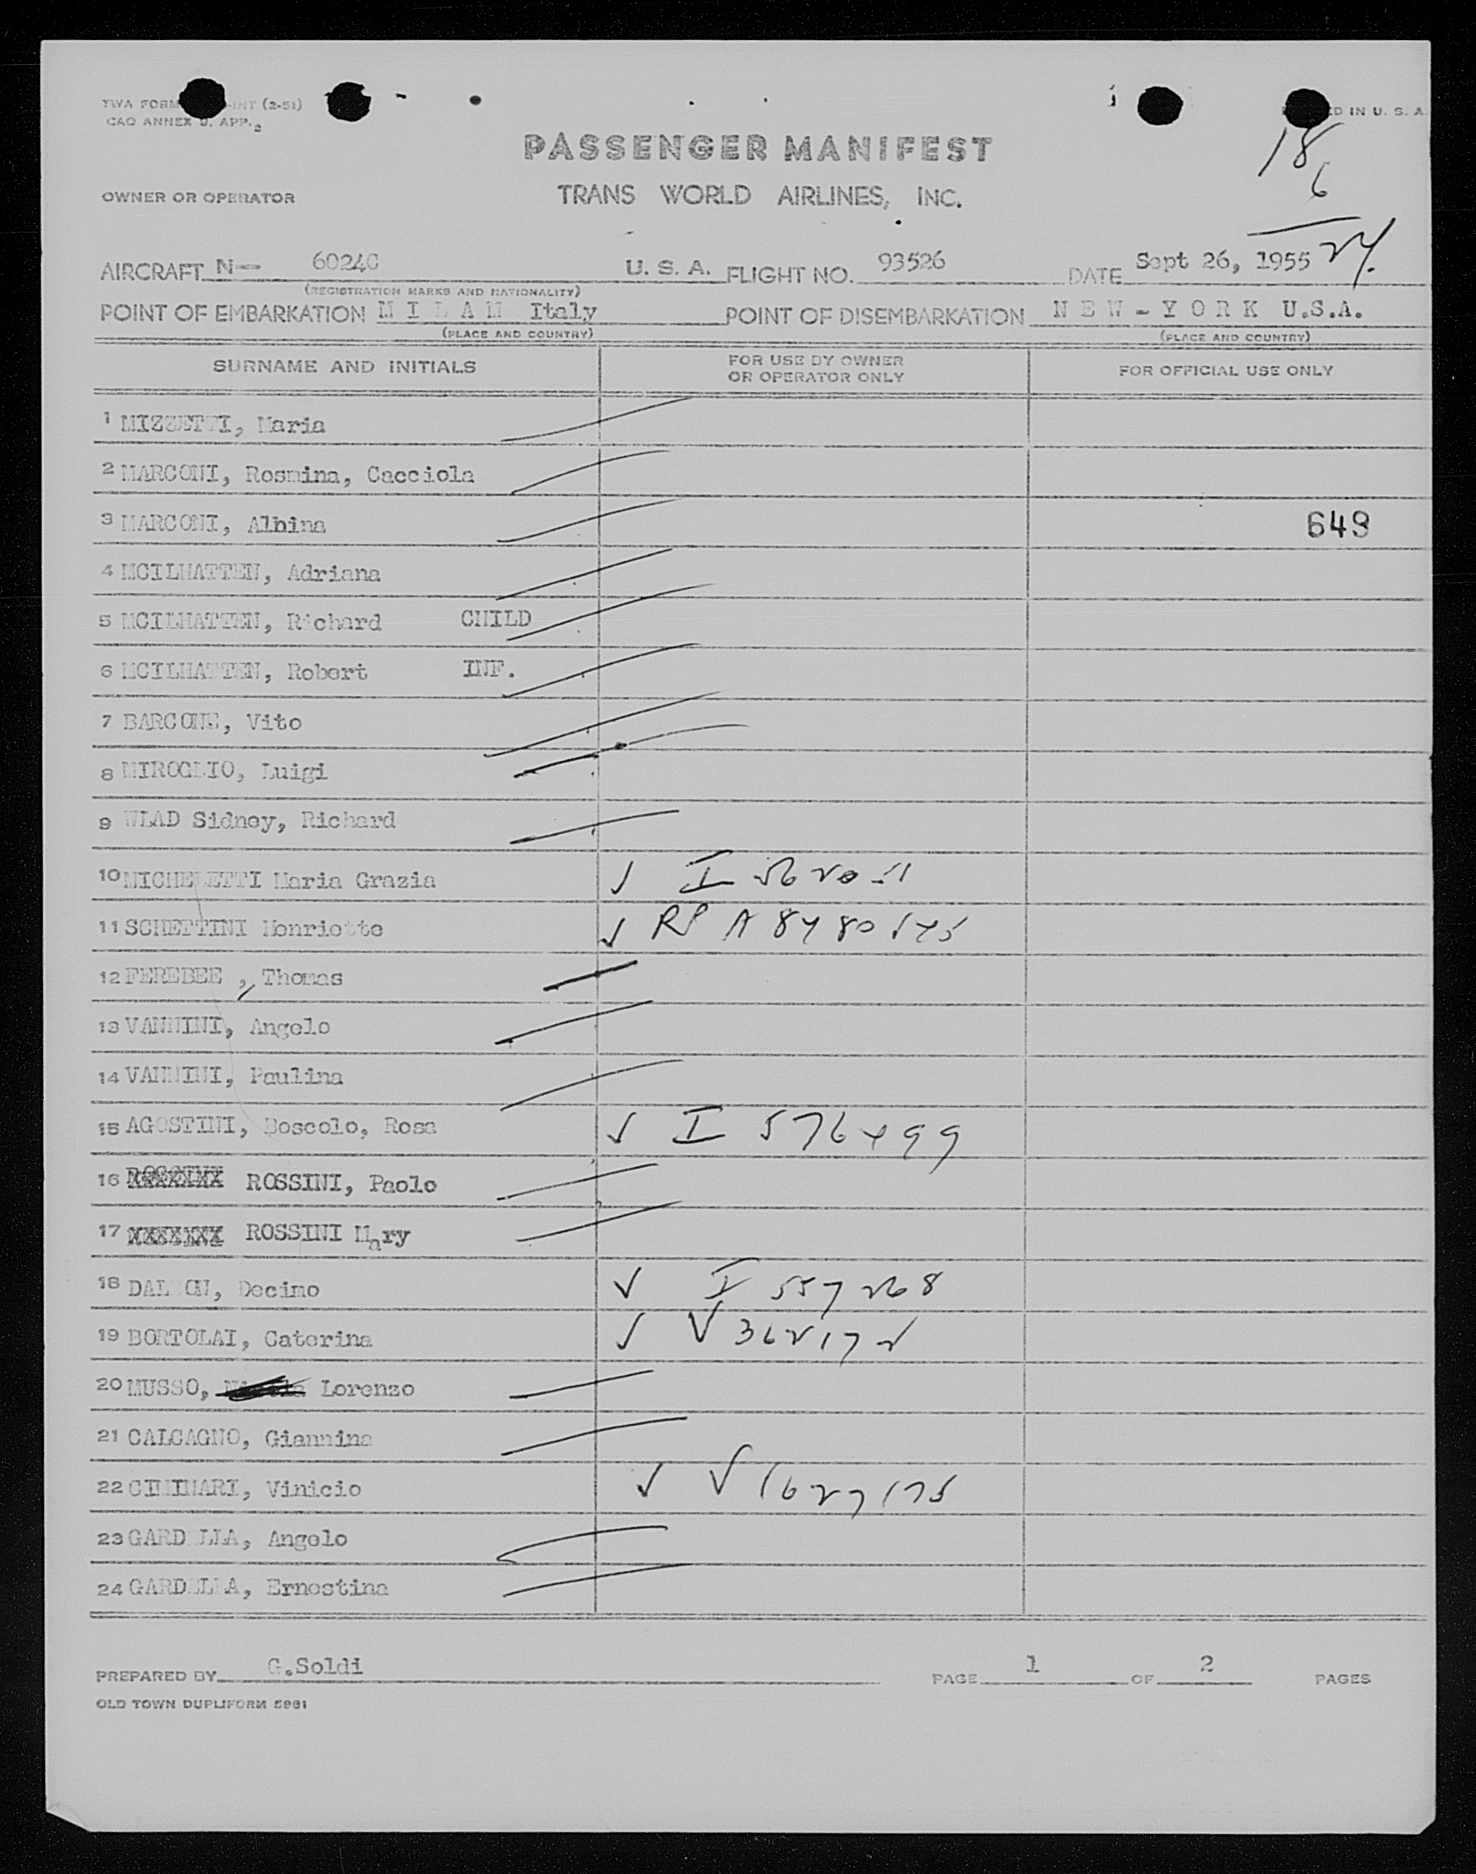 TWA FORM INT (2-51)
CAO ANNEX 9, APP. 2
D IN U. S. A.
PASSENGER MANIFEST
18
6
24.
OWNER OR OPERATOR TRANS WORLD AIRLINES, INC.
AIRCRAFT N- 6024C U. S. A. FLIGHT NO. 93526 DATE Sept 26, 1955
(REGISTRATION MARKS AND NATIONALITY)
POINT OF EMBARKATION M I L A N Italy POINT OF DISEMBARKATION N E W - Y O R K U.S.A.
(PLACE AND COUNTRY) (PLACE AND COUNTRY)
SURNAME AND INITIALS FOR USE BY OWNER OR OPERATOR ONLY FOR OFFICIAL USE ONLY
1 MIZZETTI, Maria
2 MARCONI, Rosmina, Cacciola
3 MARCONI, Albina 649
4 MCILHATTEN, Adriana
5 MCILHATTEN, Richard CHILD
6 MCILHATTEN, Robert INF.
7 BARCONE, Vito
8 MIROGLIO, Luigi
9 WLAD Sidney, Richard
10 MICHELETTI Maria Grazia ✓ I 562051
11 SCHETTINI Henriette ✓ RP A 8480545
12 FEREBEE , Thomas
13 VANNINI, Angelo
14 VANNINI, Paulina
15 AGOSTINI, Boscolo, Rosa ✓ I 576499
16 ROSSINI, Paolo
17 ROSSINI Mary
18 Decimo ✓ I 557268
19 BORTOLAI, Caterina ✓ V 362172
20 MUSSO, Lorenzo
21 CALCAGNO, Giannina
22 CIMINARI, Vinicio ✓ V 1627175
23 GARDELLA, Angelo
24 GARDELLA, Ernestina
PREPARED BY G.Soldi PAGE 1 OF 2 PAGES
OLD TOWN DUPLIFORM 5981